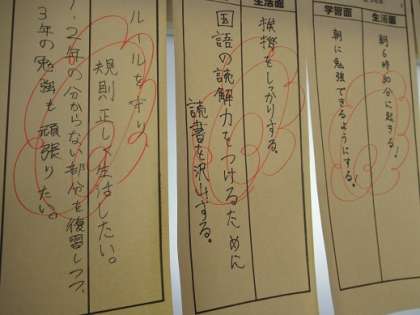 学習面
生活面
朝6時30分に起きる!
朝に勉強できるようにする!
生活面
挨拶をしっかりする。
国語の読解力をつけるために
読書を沢山する。
ルールを守り、
規則正しく生活したい。
1、2年の分からない部分を復習しつつ、
3年の勉強も頑張りたい。